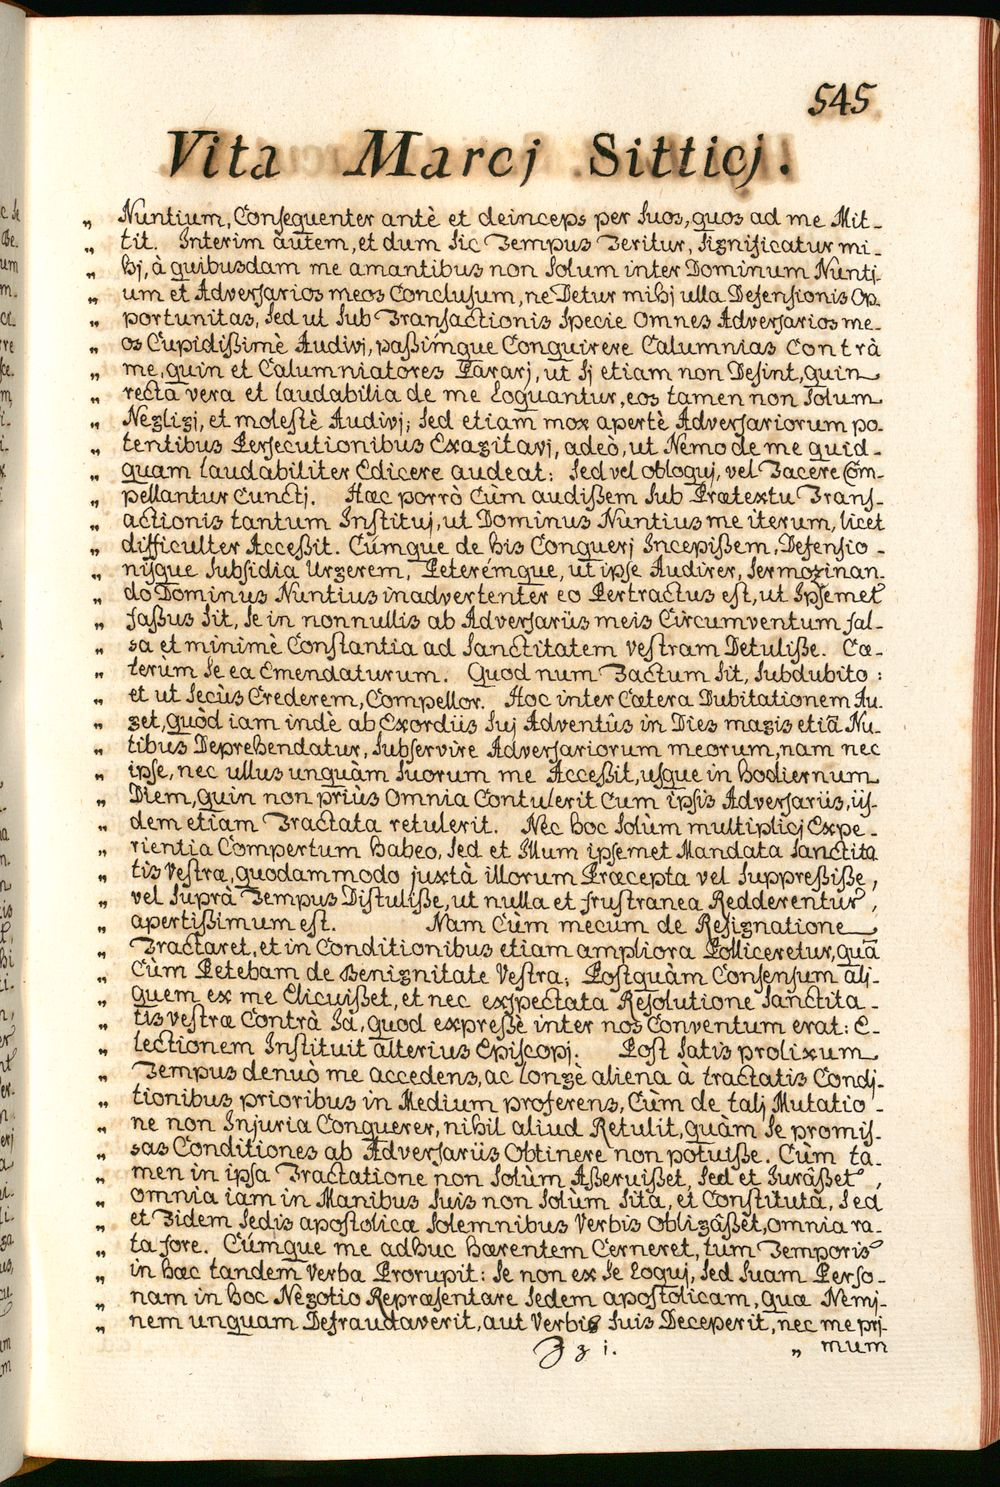 545
Vita Marcj Sitticj.
„ Nuntium, Consequenter antè et deinceps per suos, quos ad me Mit-
„ tit. Interim autem, et dum sic Tempus Teritur, significatur mi-
„ hj, à quibusdam me amantibus non solum inter Dominum Nuntj-
„ um et Adversarios meos Conclusum, ne Detur mihj ulla Defensionis Op-
„ portunitas, sed ut sub Transactionis specie Omnes Adversarios me-
„ os Cupidißimè Audivj, paßímque Conquirere Calumnias Contrà
„ me, quin et Calumniatores Pararj, ut sj etiam non Desint, quin
„ rectà vera et laudabilia de me loquantur, eos tamen non solum
„ Negligj, et molestè Audivj; sed etiam mox apertè Adversariorum po-
„ tentibus Persecutionibus Exagitavj, adeò, ut Nemo de me quid-
„ quam laudabiliter Edicere audeat: sed vel obloquj, vel Tacere Com-
„ pellantur Cunctj. Hæc porrò Cùm audißem sub Prætextu Trans-
„ actionis tantum Instituj, ut Dominus Nuntius me iterum, licet
„ difficulter Acceßit. Cúmque de his Conquerj Incepißem, Defensio-
„ nisque subsidia Urgerem, Peterémque, ut ipse Audirer, sermozinan-
„ do Dominus Nuntius inadvertenter eo Pertractus est, ut Ipsemet
„ faßus sit, se in nonnullis ab Adversariis meis Circumventum fal-
„ sa et minimè Constantia ad sanctitatem vestram Detuliße. Cæ-
„ terùm se ea Emendaturum. Quod num Factum sit, subdubito:
„ et ut secùs Crederem, Compellor. Hoc inter Cætera Dubitationem Au-
„ get, quòd iam indè ab Exordiis suj Adventûs in Dies magis etiã Nu-
„ tibus Deprehendatur, subservire Adversariorum meorum, nam nec
„ ipse, nec ullus unquàm suorum me Acceßit, usque in hodiernum
„ Diem, quin non priùs Omnia Contulerit Cum ipsis Adversariis, iis-
„ dem etiam Tractata retulerit. Nec hoc solùm multiplicj Expe-
„ rientia Compertum habeo, sed et Illum ipsemet Mandata sanctita
„ tis vestræ, quodammodo juxtà illorum Præcepta vel suppreßiße,
„ vel suprà Tempus Distuliße, ut nulla et frustranea Redderentur,
„ apertißimum est. Nam Cùm mecum de Resignatione
„ Tractaret, et in Conditionibus etiam ampliora Polliceretur, quã
„ Cùm Petebam de Benignitate Vestra; Postquàm Consensum ali-
„ quem ex me Elicuißet, et nec exspectata Resolutione sanctita-
„ tis vestræ Contrà Id, quod expreßè inter nos Conventum erat: E-
„ lectionem Instituit alterius Episcopj. Post satis prolixum
„ Tempus denuò me accedens, ac longè aliena à tractatis Condj-
„ tionibus prioribus in Medium proferens, Cùm de talj Mutatio-
„ ne non Injuria Conquerer, nihil aliud Retulit, quàm se promis-
„ sas Conditiones ab Adversariis Obtinere non potuiße. Cùm ta-
„ men in ipsa Tractatione non solùm Aßeruißet, sed et Iurâßet,
„ omnia iam in Manibus suis non solùm sita, et Constituta, sed
„ et Fidem sedis apostolicæ solemnibus Verbis obligâßet, omnia ra-
„ ta fore. Cúmque me adhuc hærentem Cerneret, tum Temporis
„ in hæc tandem Verba Prorupit: se non ex se loquj, sed suam Perso-
„ nam in hoc Negotio Repræsentare sedem apostolicam, quæ Nemj-
„ nem unquam Defraudaverit, aut Verbis suis Deceperit, nec me prj-
Z z 1. „ mum